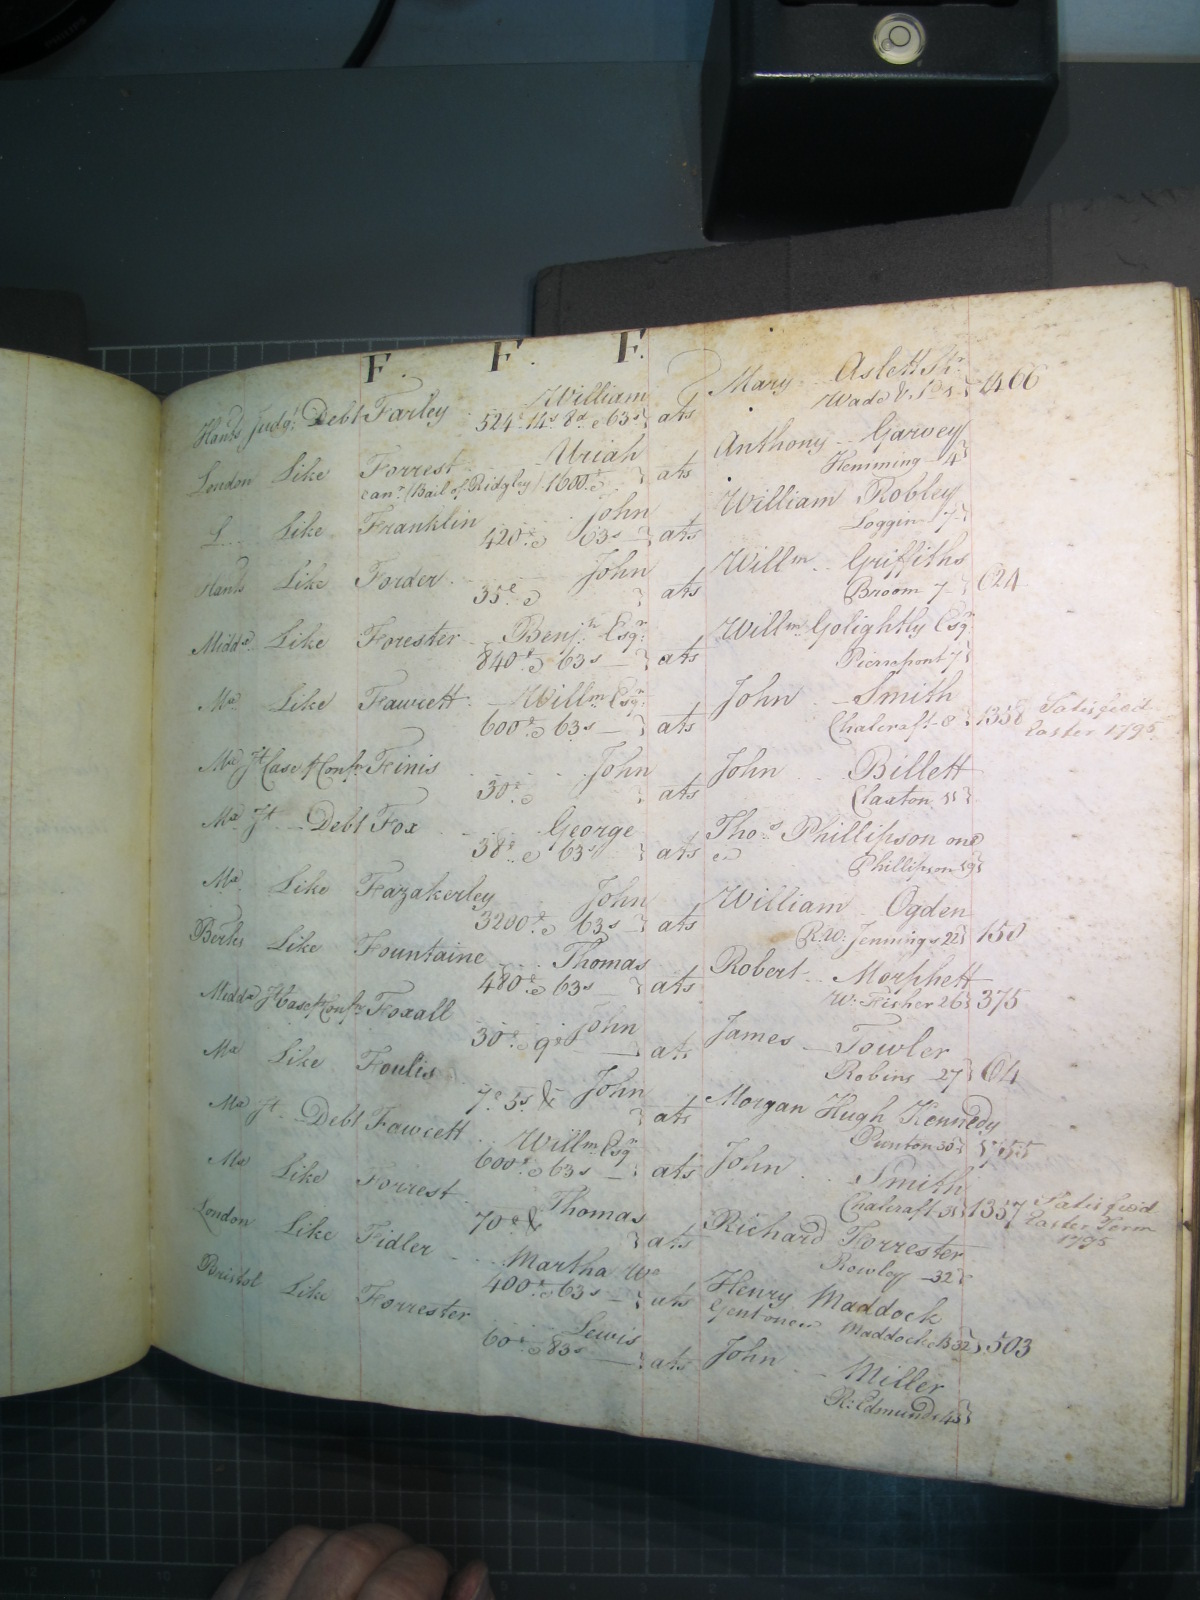 F. F. F.
Hants Judgt. Debt Farley William ats Mary Aslett Sr.
524£ 14s 8d & 63s} Wade & 1466
London Like Forrest Uriah ats Anthony Garvey
(Bail of Ridgley) 1600£ } Hemming 4}
L Like Franklin John ats William Robley
420£ & 63s } Loggin 7}
Hants Like Forder John ats Willm. Griffiths
35£ & } Broom 7 } 624
Middx Like Forester Benjn. Esqr. ats Willm. Golightly Esqr.
840£ & 63s } Pierrepont 7}
Mx Like Fawcett Willm. Esqr. ats John Smith
600£ & 63s } Chalcraft 8 } 1358 Satisfied
Easter 1795
Mx Jt Case & Confn Finis John ats John Billett
30£ & } Claxton 11}
Mx Jt Debt Fox George ats Thos. Phillipson one
38£ & 63s } &c Phillipson 19}
Mx Like Fazakerley John ats William Ogden
3200£ & 63s } R. W. Jennings 22} 150
Berks Like Fountaine Thomas ats Robert Morphett
480£ & 63s } W. Fisher 26} 375
Middx Jt Case & Confn Foxall John ats James Towler
30£ 9s Robins 27} 64
Mx Like Foulis John ats Morgan Hugh Kennedy
7£ 3s & } Punton 30}
Mx Jt Debt Fawcett Willm. Esqr ats John Smith
600£ & 63s } Chalcraft 31} 1357 Satisfied
Easter Term
1795
Mx Like Forrest Thomas ats Richard Forrester
70£ & } Rowley 32}
London Like Fidler Martha Wo ats Henry Maddock
400£ & 63s } Gent one &c Maddock & B 32} 503
Bristol Like Forrester Lewis ats John Miller
60£ & 83s } R. Edmunds 43}